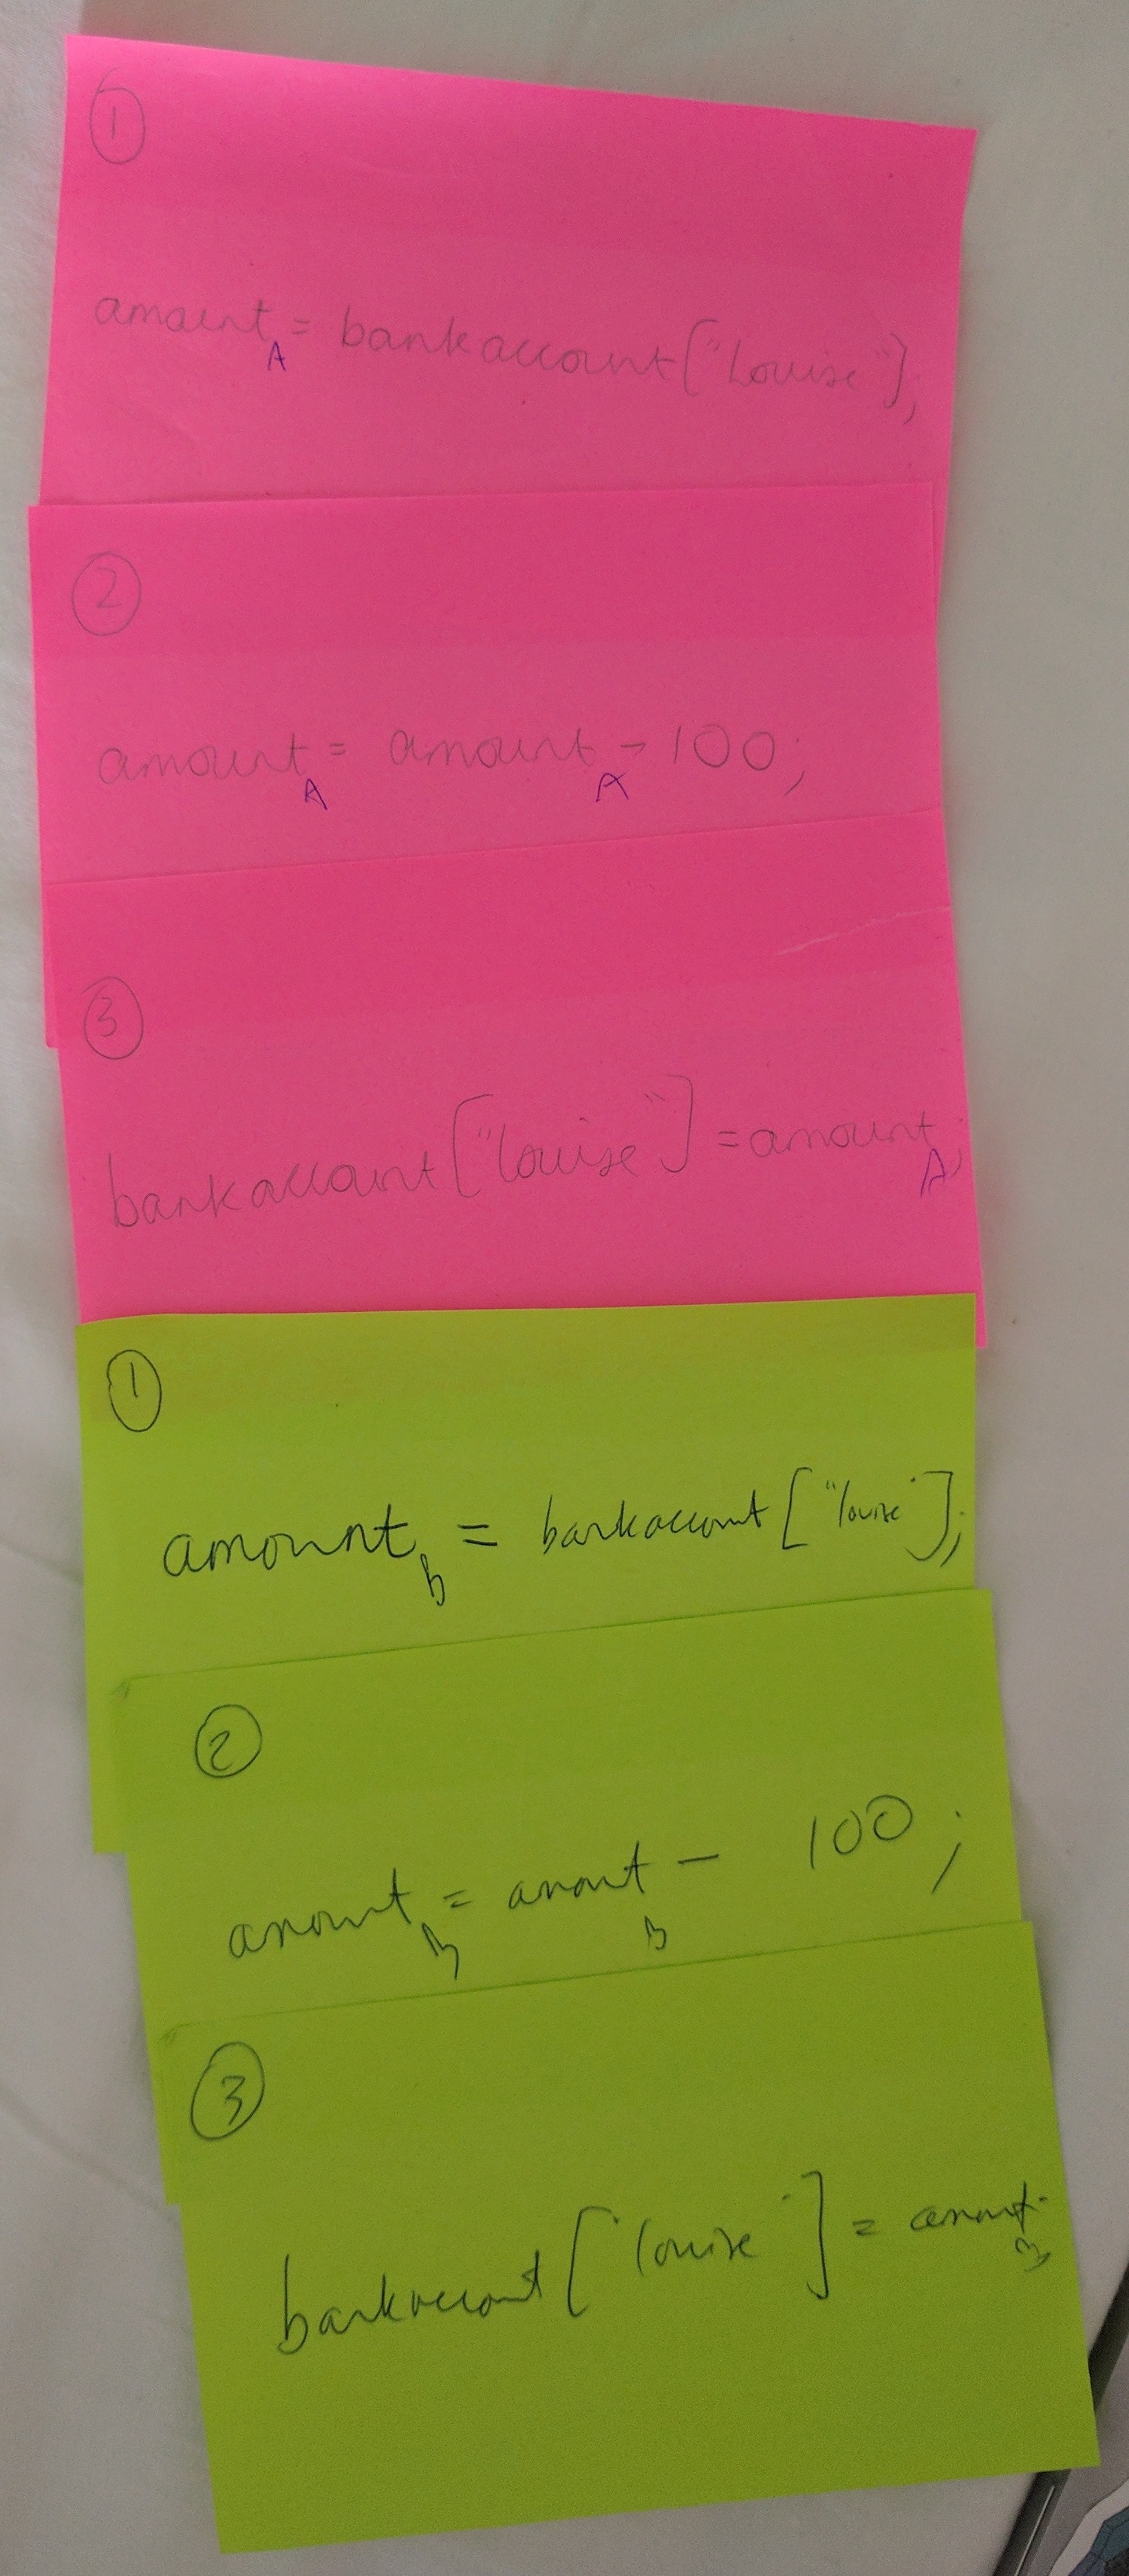 1
amount A = bankaccount["Louise"];
2
amount A = amount A - 100;
3
bankaccount["louise"] = amount A;
1
amount b = bankaccount["louise"];
2
amount B = amount B - 100;
3
bankaccount["louise"] = amount B